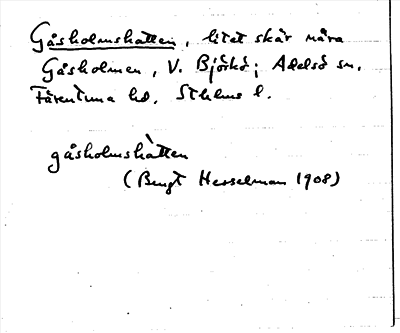 Gåsholmshatten, litet skär nära
Gåsholmen, V. Björkö; Adelsö sn.
Färentuna hd. Sthlms l.
gåsholmshàtten
(Bengt Hesselman 1908)